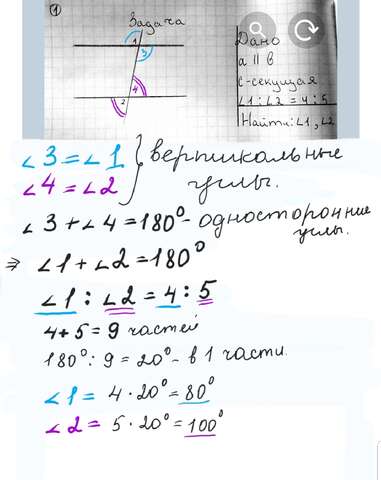 1
Задача
1
3
4
2
Дано
a || в
с-секущая
∠1:∠2 = 4:5
Найти: ∠1, ∠2
∠3 = ∠1 } вертикальные
∠4 = ∠2 углы.
∠3 + ∠4 = 180° - односторонние
углы.
⇒ ∠1 + ∠2 = 180°
∠1 : ∠2 = 4 : 5
4+5 = 9 частей
180° : 9 = 20° - в 1 части.
∠1 = 4 · 20° = 80°
∠2 = 5 · 20° = 100°